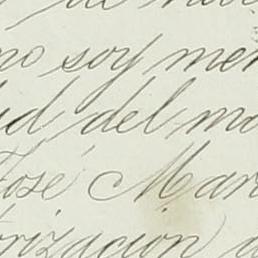 no soy men
ud del ma
José Mar
rización d